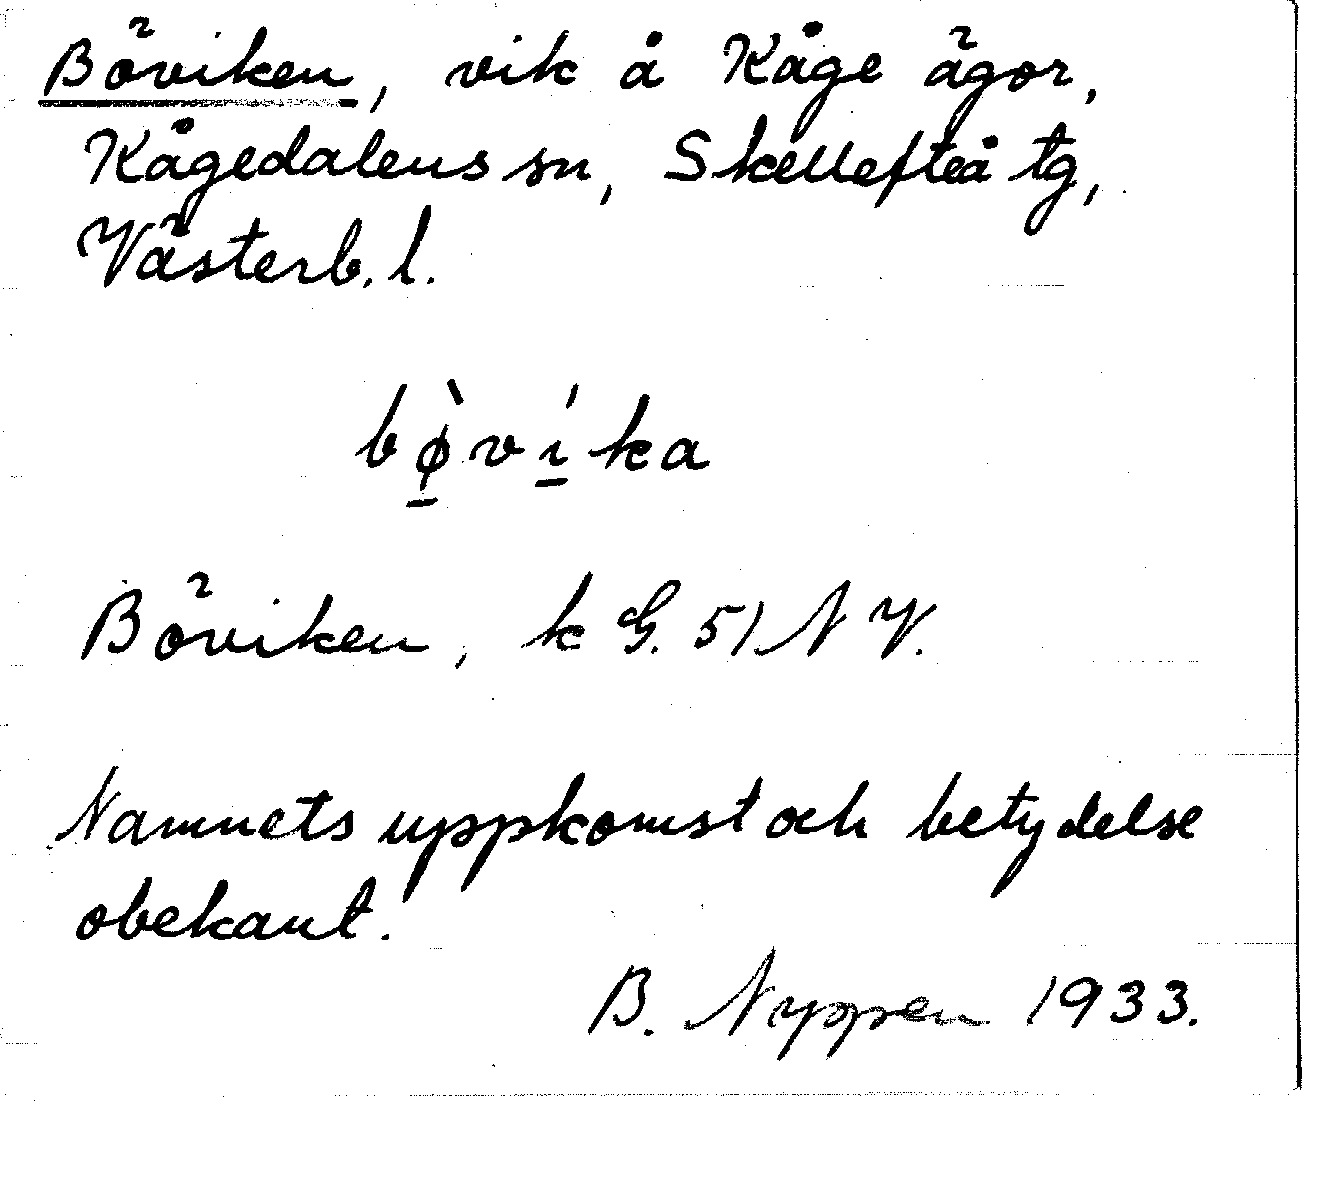 Böviken, vik å Kåge ägor,
Kågedalens sn, Skellefteå tg,
Västerb. l.
bø̱̀vı̱́ka
Böviken, k G. 51 N V.
Namnets uppkomst och betydelse
obekant.
B. Nyppen 1933.